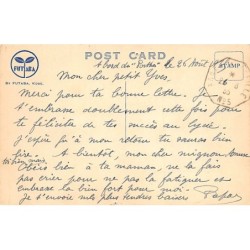 FUTABA
POST CARD
STAMP
A bord du le 26 Août
Mon cher petit Yves,
Merci pour ta bonne lettre. Je
t'embrasse doublement cette fois pour
te féliciter de tes succès au lycée.
J'espère qu'à mon retour tu sauras bien
lire à bientôt, mon cher mignon bonne
Obéis bien à ta maman, ne la fais
pas crier pour ne pas la fatiguer et
embrasse la bien fort pour moi.
Je t'envoie mes plus tendres baisers
Papa